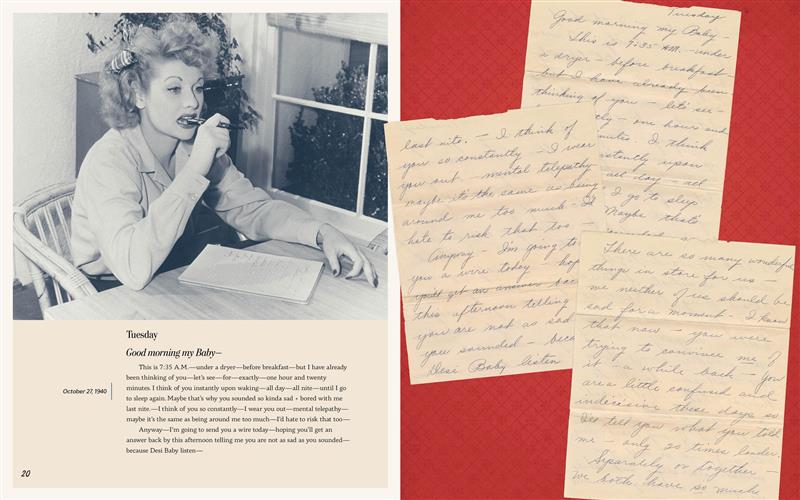 Tuesday
Good morning my Baby—
This is 7:35 A.M.—under a dryer—before breakfast—but I have already
been thinking of you—let's see—for—exactly—one hour and twenty
minutes. I think of you instantly upon waking—all day—all nite—until I go
to sleep again. Maybe that's why you sounded so kinda sad + bored with me
last nite.—I think of you so constantly—I wear you out—mental telepathy—
maybe it's the same as being around me too much—I'd hate to risk that too—
Anyway—I'm going to send you a wire today—hoping you'll get an
answer back by this afternoon telling me you are not as sad as you sounded—
because Desi Baby listen—
October 27, 1940
20
Tuesday
Good morning my Baby—
This is 7:35 A.M.—under
a dryer—before breakfast—
but I have already been
thinking of you—let's see—
one hour and
minutes. I think
upon
all day—all
I go to sleep
Maybe that's
last nite.—I think of
you so constantly—I wear
you out—mental telepathy
maybe its the same as being
around me too much—I'd
hate to risk that too—
Anyway—I'm going to
you a wire today—
you'll get an answer back
this afternoon telling
you are not as sad
you sounded—
Desi Baby listen
There are so many wonderful
things in store for us—
we neither of us should be
sad for a moment—I know
that now—you were
trying to convince me of
it—a while back—you
are a little confused and
indecisive these days so
I'll tell you what you told
me—only 20 times louder.
Separately or together—
we both have so much